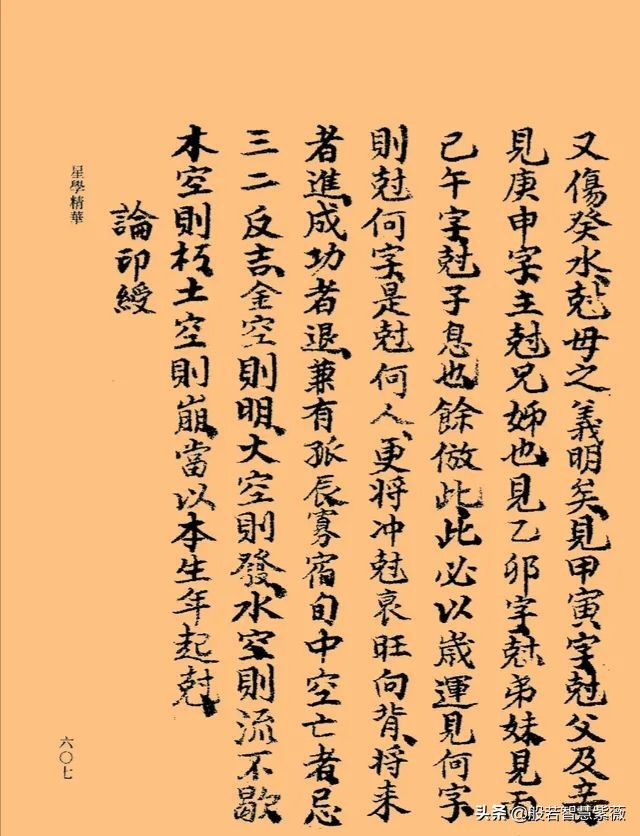 又傷癸水尅母之義明矣見甲寅字尅父及妻
見庚申字主尅兄姊也見乙卯字尅弟妹見
己午字尅子息也餘倣此此必以歲運見何字
則尅何字是尅何人更将冲尅衰旺向背将来
者進成功者退兼有孤辰寡宿旬中空亡者忌
三二反吉金空則明大空則發水空則流不歇
木空則朽土空則崩當以本生年起尅
論印綬
星學精華
六〇七
头条 @般若智慧紫薇